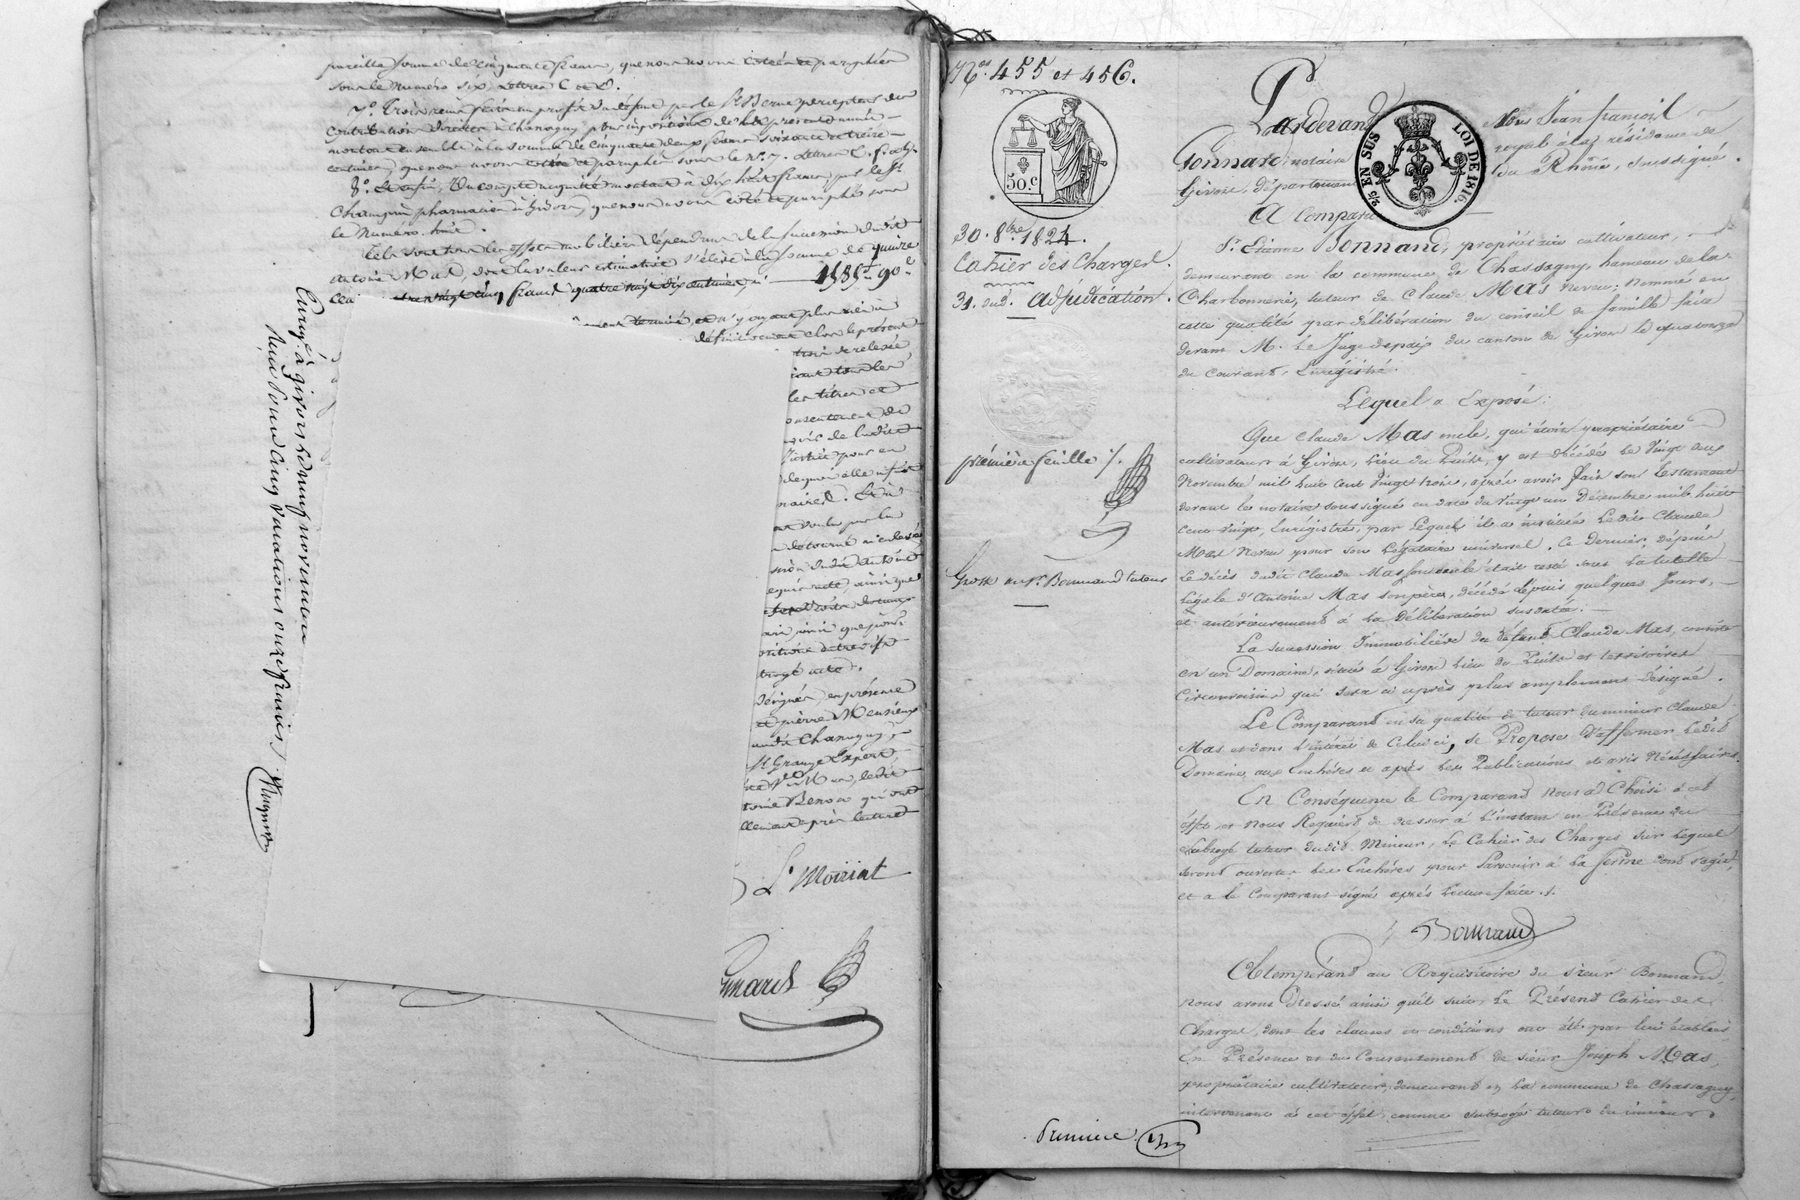 pareille somme de cinquante francs, que nous avons cotée et paraphée
sous le numéro six, lettres C et D.
7.° Trois reçus faits au profit du défunt par le Sr Berne percepteur des
contributions directes à Chassagny pour impositions de la présente année
montant ensemble à la somme de cinquante deux francs soixante et treize
centimes, que nous avons cotés et paraphés sous le N.° 7. Lettres
8.° Et enfin, un compte acquitté montant à dix huit francs, par le Sr
Champin pharmacien à Givors, que nous avons coté et paraphé sous
le Numéro huit.
Tels sont tous les effets mobiliers dépendans de la succession dudit
Antoine Mas, dont la valeur estimative s'élève à la somme de quinze
cen vingt cinq francs quatre vingt dix centimes, ci 1535f 90c
ement terminé et n'y ayant plus rien à
définitivement clos le présent
trois de relevée
tous les
les titres et
consentement de
de ladite
pour en
de quoi elle
naires. Et à
par la
détourné
dudit Antoine
ainsi que
que pour
vingt acte.
Dérigués, en présence
et pierre Meusieux
audit Chassagny
Sr Grange Expert
Mas, ledit
toine Benoit qui ont
llement après lecture
L. Moiriat
nnard
Enregé à givors le deux novembre
Reçu pour cinq vacations onze francs
N.os 455 et 456.
50.c
30. 8bre 1824.
Cahier des Charges.
31. dud. Adjudication.
première feuille
Grosse au Sr. Bonnand tuteur
Pardevant Mtre Jean françois
Gonnard, notaire royal à la résidence de
Givors, département du Rhône, soussigné.
2/5 EN SUS LOI DE 1816.
A Comparu
Sr. Etienne Bonnand, propriétaire cultivateur,
demeurant en la commune de Chassagny, hameau de la
Charbonnerie, tuteur de Claude Mas Neveu; nommé en
cette qualité par délibération du conseil de famille faite
devant M. le Juge depaix du canton de Givors le quatorze
du courant, Enrégistré.
Lequel a Exposé:
Que Claude Mas oncle, qui étoit propriétaire
cultivateur à Givors, lieu du Puits, y est décédé le Vingt deux
Novembre mil huit cent vingt trois, après avoir fait son testament
devant le notaire soussigné en date du Vingt un Décembre mil huit
cent vingt, Enrégistré, par lequel il a institué ledit Claude
Mas Neveu pour son légataire universel. Ce dernier, depuis
le décès dudit Claude Mas son oncle était resté sous la tutelle
Légale d'Antoine Mas son père, décédé depuis quelques Jours,
et antérieurement à la Délibération susdatée.
La succession Immobilière du défunt Claude Mas, consiste
en un Domaine, situé à Givors lieu du Puits et territoires
Circonvoisins qui sera ci après plus amplement désigné.
Le Comparant en sa qualité de tuteur du mineur Claude
Mas et dans l'intérêt de Celui ci, se Propose d'affermer Ledit
Domaine aux Enchères et après les Publications et avis Nécessaires.
En Conséquence le Comparant Nous a Choisi à cet
effet, et nous Requiert de dresser à l'instant en Présence du
subrogé tuteur dudit Mineur, Le Cahier des Charges sur lequel
seront ouvertes les Enchères pour Parvenir à la ferme dont s'agit,
et a le Comparant signé après Lecture faite.
Bonnand
Obtempérant au Requisitoire du sieur Bonnand,
nous avons Dressé ainsi qu'il suit, Le Présent Cahier des
Charges, dont les clauses et conditions ont été par lui établies
En Présence et du Consentement de sieur Joseph Mas,
propriétaire cultivateur, demeurant en la commune de Chassagny,
intervenant à cet effet, comme subrogé tuteur du mineur
Premiere